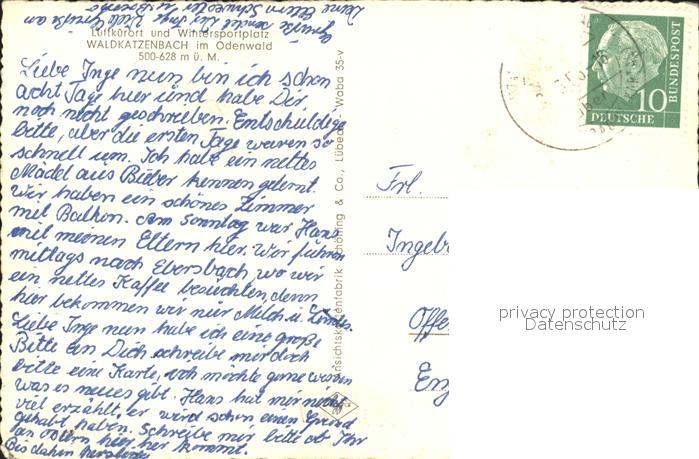 Luftkurort und Wintersportplatz
WALDKATZENBACH im Odenwald
500-628 m ü. M.
Liebe Inge nun bin ich schon
acht Tage hier und habe Dir,
noch nicht geschrieben. Entschuldige
bitte, aber die ersten Tage waren so
schnell um. Ich habe ein nettes
Mädel aus Bieber kennen gelernt.
Wir haben ein schönes Zimmer
mit Balkon. Am Sonntag war Hans
mit meinen Eltern hier. Wir fuhren
mittags nach Ebersbach, wo wir
ein nettes Kaffee besuchten, denn
hier bekommen wir nur Milch u.
Liebe Inge nun habe ich eine große
Bitte an Dich, schreibe mir doch
bitte eine Karte, ich möchte gerne wissen
was es neues gibt. Hans hat mir nicht
viel erzählt, er wird schon einen Grund
gehabt haben. Schreibe mir bitte ob Ihr
an Ostern hier her kommt.
Bis dahin herzliche
Grüße sendet Dir Inge Viele Grüße an
Deine Eltern
Ansichtskartenfabrik Schöning & Co., Lübeck Waba 35-v
10
DEUTSCHE
BUNDESPOST
Frl.
Ingeb
Offe
privacy protection
Datenschutz